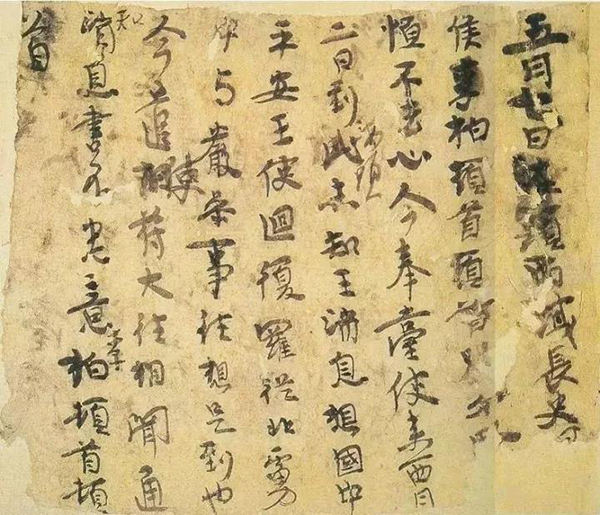 五月七日海頭西域長史
侯李柏頓首頓首別
恒不去心今奉臺使來西月
二日到此海頭未知王消息想國中
平安王使迴復羅從北虜
中与嚴參事往想是到也
今遣使苻大往相聞通
知消息書不悉意李柏頓首頓
首